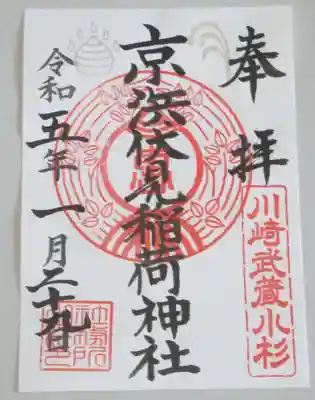 奉拝
川崎武蔵小杉
京浜伏見稲荷神社
令和五年一月二十九日